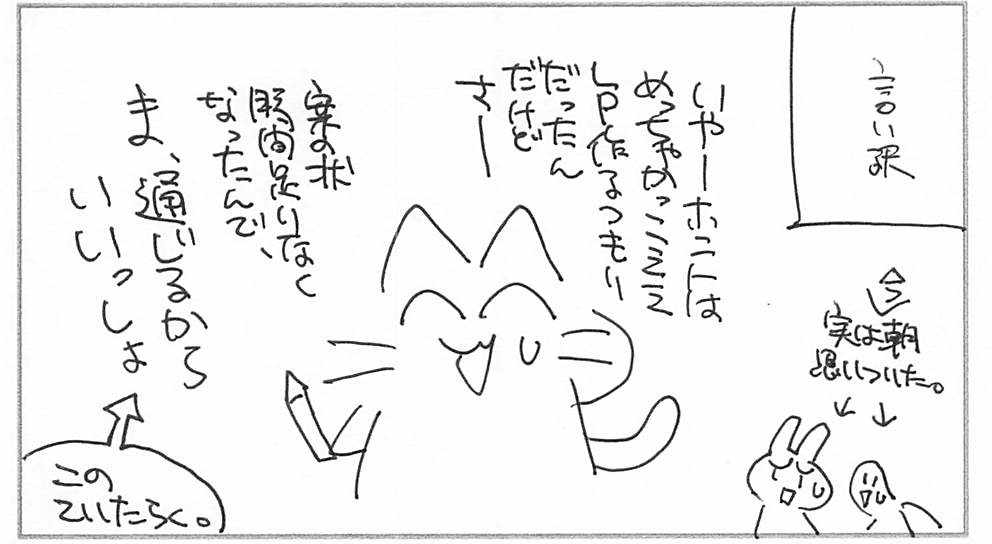 言い訳
実は朝
思いついた。
いやーホントは
めっちゃかっこミミミ
LP作るつもり
だったん
だけど
さー
案の状
時間足りなく
なったんで、
ま、通じるから
いいっしょ
この
ていたらく。